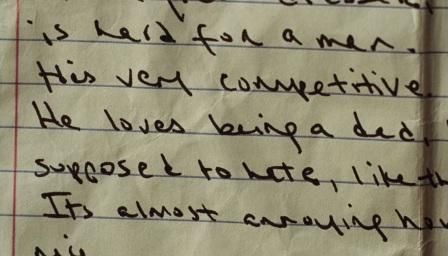 is hard for a man.
His very competitive.
He loves being a dad,
supposed to hate, like th
Its almost annoying how